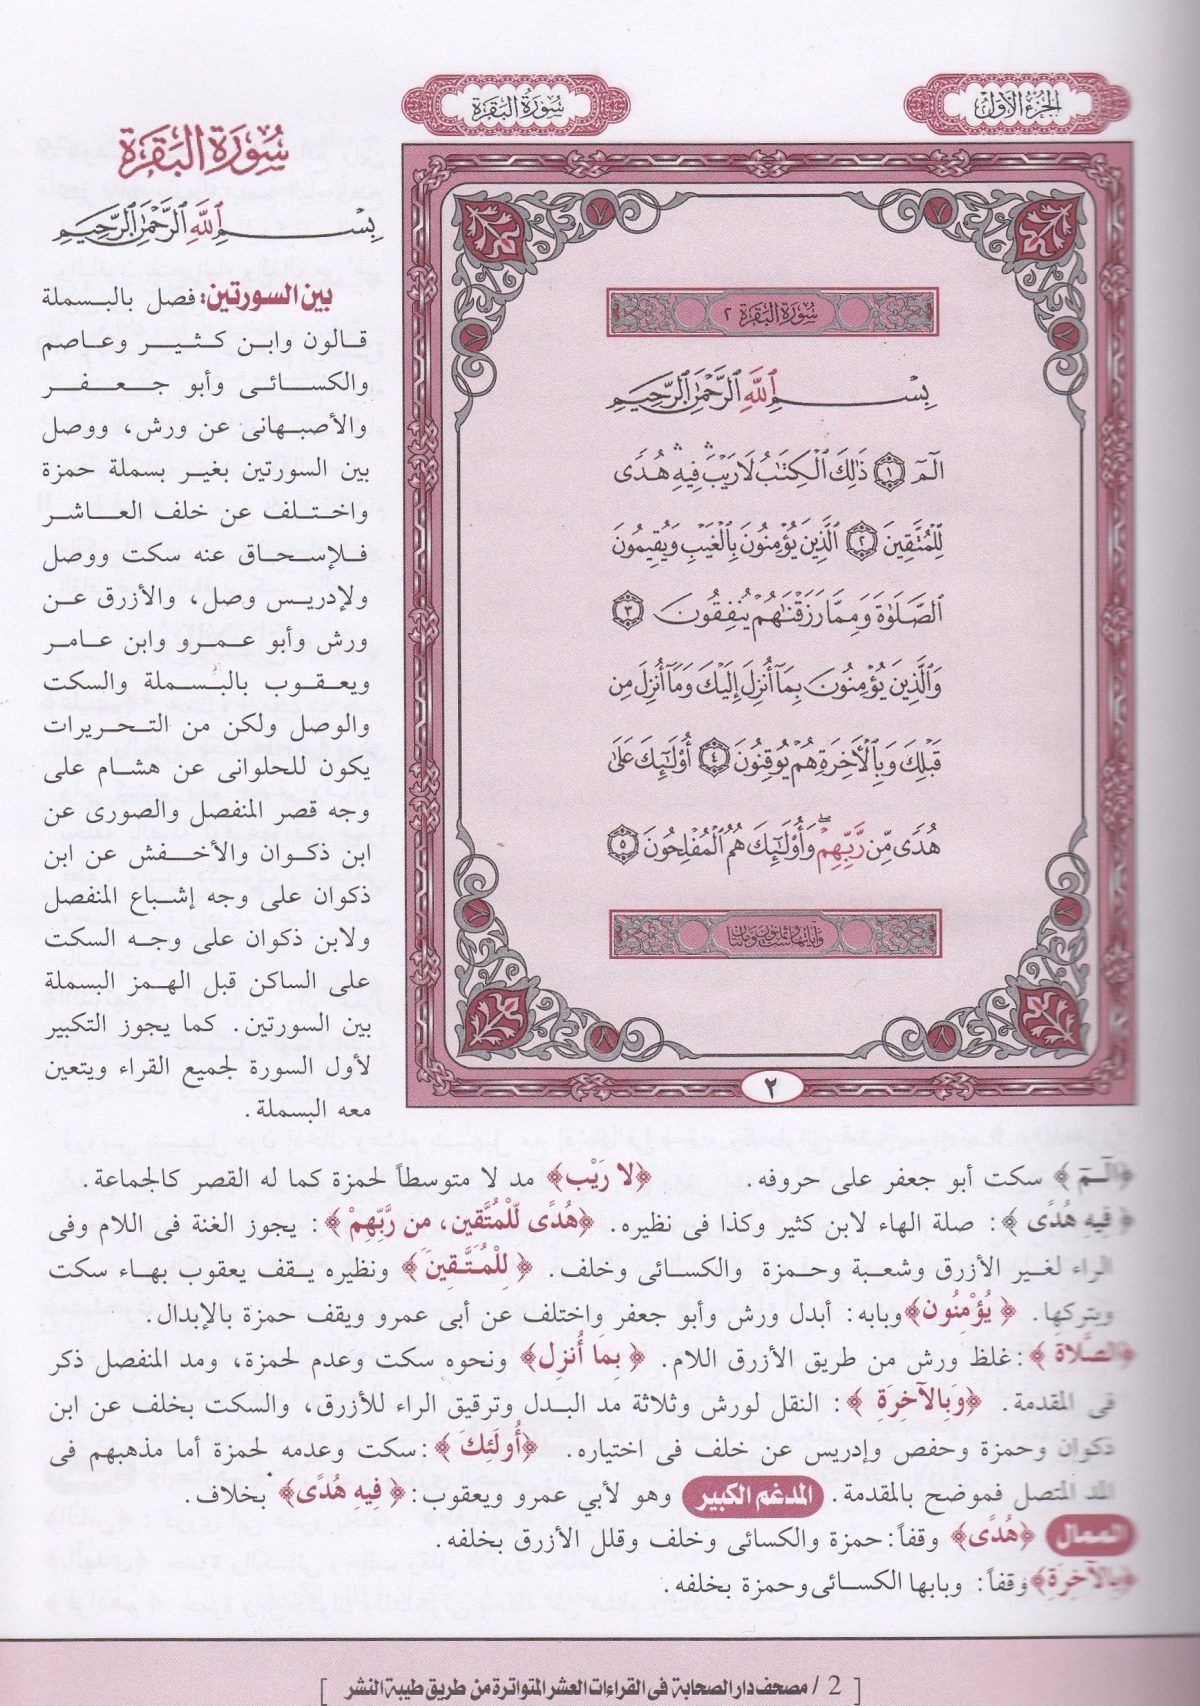 الجزء الأول
سورة البقرة
سُورَةُ البَقَرَةِ ٢
بِسْمِ ٱللَّهِ ٱلرَّحْمَٰنِ ٱلرَّحِيمِ
الٓمٓ ١ ذَٰلِكَ ٱلْكِتَٰبُ لَا رَيْبَ ۛ فِيهِ ۛ هُدًى
لِّلْمُتَّقِينَ ٢ ٱلَّذِينَ يُؤْمِنُونَ بِٱلْغَيْبِ وَيُقِيمُونَ
ٱلصَّلَوٰةَ وَمِمَّا رَزَقْنَٰهُمْ يُنفِقُونَ ٣
وَٱلَّذِينَ يُؤْمِنُونَ بِمَآ أُنزِلَ إِلَيْكَ وَمَآ أُنزِلَ مِن
قَبْلِكَ وَبِٱلْأَخِرَةِ هُمْ يُوقِنُونَ ٤ أُوْلَٰٓئِكَ عَلَىٰ
هُدًى مِّن رَّبِّهِمْ ۖ وَأُوْلَٰٓئِكَ هُمُ ٱلْمُفْلِحُونَ ٥
وآياتها ست وثمانون ومائتان
٢
سُورَةُ البَقَرَةِ
بِسْمِ ٱللَّهِ ٱلرَّحْمَٰنِ ٱلرَّحِيمِ
بين السورتين: فصل بالبسملة
قالون وابن كثير وعاصم
والكسائى وأبو جعفر
والأصبهانى عن ورش، ووصل
بين السورتين بغير بسملة حمزة
واختلف عن خلف العاشر
فلإسحاق عنه سكت ووصل
ولإدريس وصل، والأزرق عن
ورش وأبو عمرو وابن عامر
ويعقوب بالبسملة والسكت
والوصل ولكن من التحريرات
يكون للحلوانى عن هشام على
وجه قصر المنفصل والصورى عن
ابن ذكوان والأخفش عن ابن
ذكوان على وجه إشباع المنفصل
ولابن ذكوان على وجه السكت
على الساكن قبل الهمز البسملة
بين السورتين. كما يجوز التكبير
لأول السورة لجميع القراء ويتعين
معه البسملة.
﴿الٓمٓ﴾ سكت أبو جعفر على حروفه. ﴿لا رَيْب﴾ مد لا متوسطاً لحمزة كما له القصر كالجماعة.
﴿فِيهِ هُدًى﴾: صلة الهاء لابن كثير وكذا فى نظيره. ﴿هُدًى لِّلْمُتَّقِين، من رَّبِّهِمْ﴾: يجوز الغنة في اللام وفى
الراء لغير الأزرق وشعبة وحمزة والكسائى وخلف. ﴿لِلْمُتَّقِينَ﴾ ونظيره يقف يعقوب بهاء سكت
ويتركها. ﴿يُؤْمِنُون﴾ وبابه: أبدل ورش وأبو جعفر واختلف عن أبى عمرو ويقف حمزة بالإبدال.
﴿الصَّلاة﴾: غلظ ورش من طريق الأزرق اللام. ﴿بِمَا أُنزِل﴾ ونحوه سكت وعدم لحمزة، ومد المنفصل ذكر
فى المقدمة. ﴿وَبِالآخِرَةِ﴾: النقل لورش وثلاثة مد البدل وترقيق الراء للأزرق، والسكت بخلف عن ابن
ذكوان وحمزة وحفص وإدريس عن خلف فى اختياره. ﴿أُولَئِكَ﴾: سكت وعدمه لحمزة أما مذهبهم فى
المد المتصل فموضح بالمقدمة. المدغم الكبير وهو لأبي عمرو ويعقوب: ﴿فِيهِ هُدًى﴾ بخلاف.
الممال ﴿هُدًى﴾ وقفاً: حمزة والكسائى وخلف وقلل الأزرق بخلفه.
﴿بِالآخِرَةِ﴾ وقفاً: وبابها الكسائى وحمزة بخلفه.
[ 2 / مصحف دار الصحابة فى القراءات العشر المتواترة من طريق طيبة النشر ]